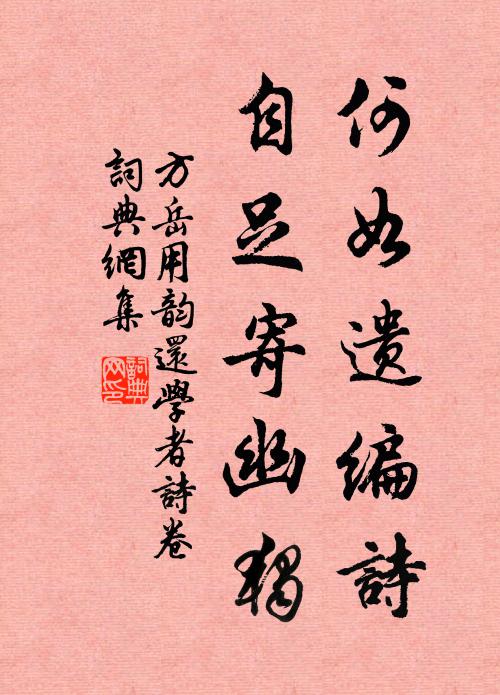 何如遺編詩
自足寄幽獨
方岳用韵還學者詩卷
詞典網集
詞典網印